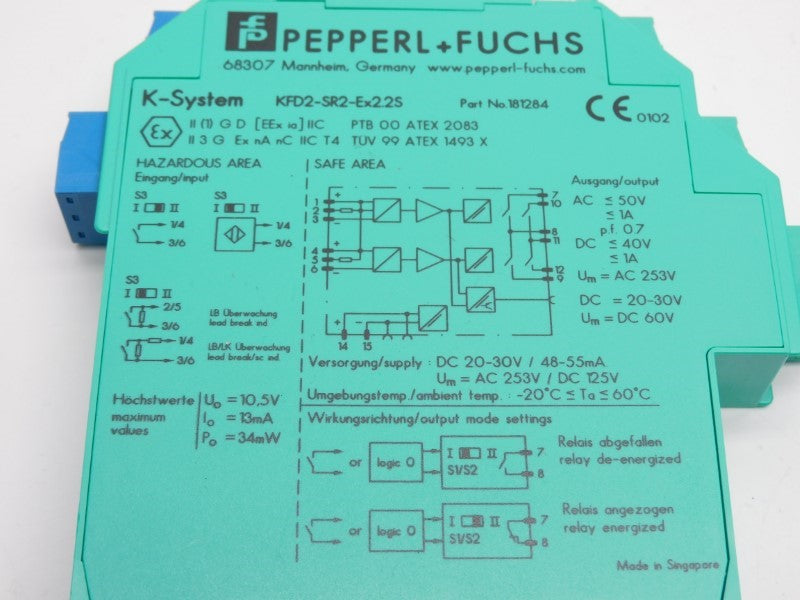 PEPPERL+FUCHS
68307 Mannheim, Germany www.pepperl-fuchs.com
K-System KFD2-SR2-Ex2.2S Part No.181284 CE 0102
Ex II (1) G D [EEx ia] IIC PTB 00 ATEX 2083
II 3 G Ex nA nC IIC T4 TÜV 99 ATEX 1493 X
HAZARDOUS AREA
Eingang/input
S3
I II
1/4
3/6
S3
I II
1/4
3/6
S3
I II
2/5
3/6
LB Überwachung
lead break ind.
1/4
3/6
LB/LK Überwachung
lead break/sc ind.
Höchstwerte
maximum
values
Uo = 10,5V
Io = 13mA
Po = 34mW
SAFE AREA
1
2
3
4
5
6
+
−
+
−
7
10
8
11
12
9
+
−
14 15
Ausgang/output
AC ≤ 50V
≤ 1A
p.f. 0.7
DC ≤ 40V
≤ 1A
Um = AC 253V
DC = 20-30V
Um = DC 60V
Versorgung/supply : DC 20-30V / 48-55mA
Um = AC 253V / DC 125V
Umgebungstemp./ambient temp. : -20°C ≤ Ta ≤ 60°C
Wirkungsrichtung/output mode settings
or logic 0 I II S1/S2 7 8
Relais abgefallen
relay de-energized
or logic 0 I II S1/S2 7 8
Relais angezogen
relay energized
Made in Singapore